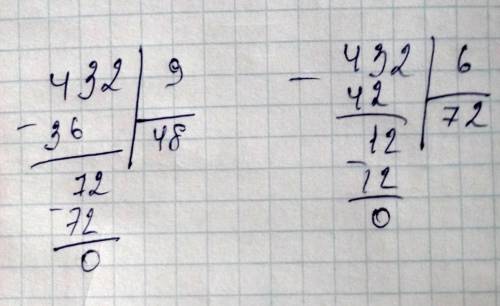 432 9
- 36 48
72
- 72
0
- 432 6
42 72
12
- 12
0